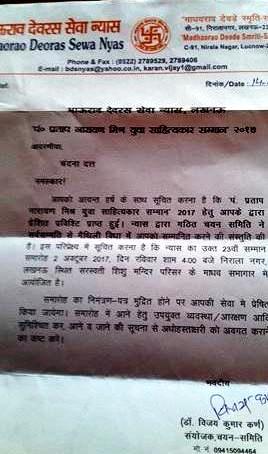 भाऊराव देवरस सेवा न्यास
Bhaorao Deoras Sewa Nyas
"माधवराव देवड़े स्मृति
सी-91, निरालानगर, लखनऊ
"Madhaorao Deode Smriti
C-91, Nirala Nagar, Lucknow
दूरभाष / Ph.: (0522) 2789529, 2789406
E-mail : bdsnyas@yahoo.co.in, karan.vijay1@gmail.com
दिनांक / Date
भाऊराव देवरस सेवा न्यास, लखनऊ
"पं. प्रताप नारायण मिश्र युवा साहित्यकार सम्मान" २०१७
आदरणीया,
वंदना दत्त
नमस्कार!
आपको अत्यन्त हर्ष के साथ सूचित करना है कि 'पं. प्रताप
नारायण मिश्र युवा साहित्यकार सम्मान' 2017 हेतु आपके द्वारा
प्रेषित प्रविष्टि प्राप्त हुई। न्यास द्वारा गठित चयन समिति ने
सर्वसम्मति से मैथिली विधा में आपको सम्मानित करने की संस्तुति की
है। इस परिप्रेक्ष्य में सूचित करना है कि न्यास का उक्त 23वाँ सम्मान
समारोह 2 अक्टूबर 2017, दिन रविवार शाम 4.00 बजे निराला नगर,
लखनऊ स्थित सरस्वती शिशु मन्दिर परिसर के माधव सभागार में
आयोजित है।
समारोह का निमंत्रण-पत्र मुद्रित होने पर आपकी सेवा में प्रेषित
किया जायेगा। समारोह में आने हेतु उपयुक्त व्यवस्था/आरक्षण आदि
सुनिश्चित कर, आने व जाने की सूचना से अधोहस्ताक्षरी को अवगत कराने
का कष्ट करें।
भवदीय
(डॉ. विजय कुमार कर्ण)
संयोजक, चयन-समिति
मो. नं. 09415094464